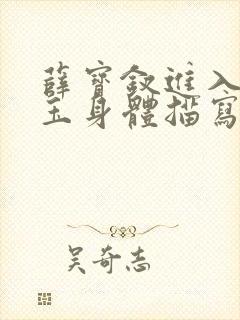 薛寶釵進入
玉身體描寫
吳奇志